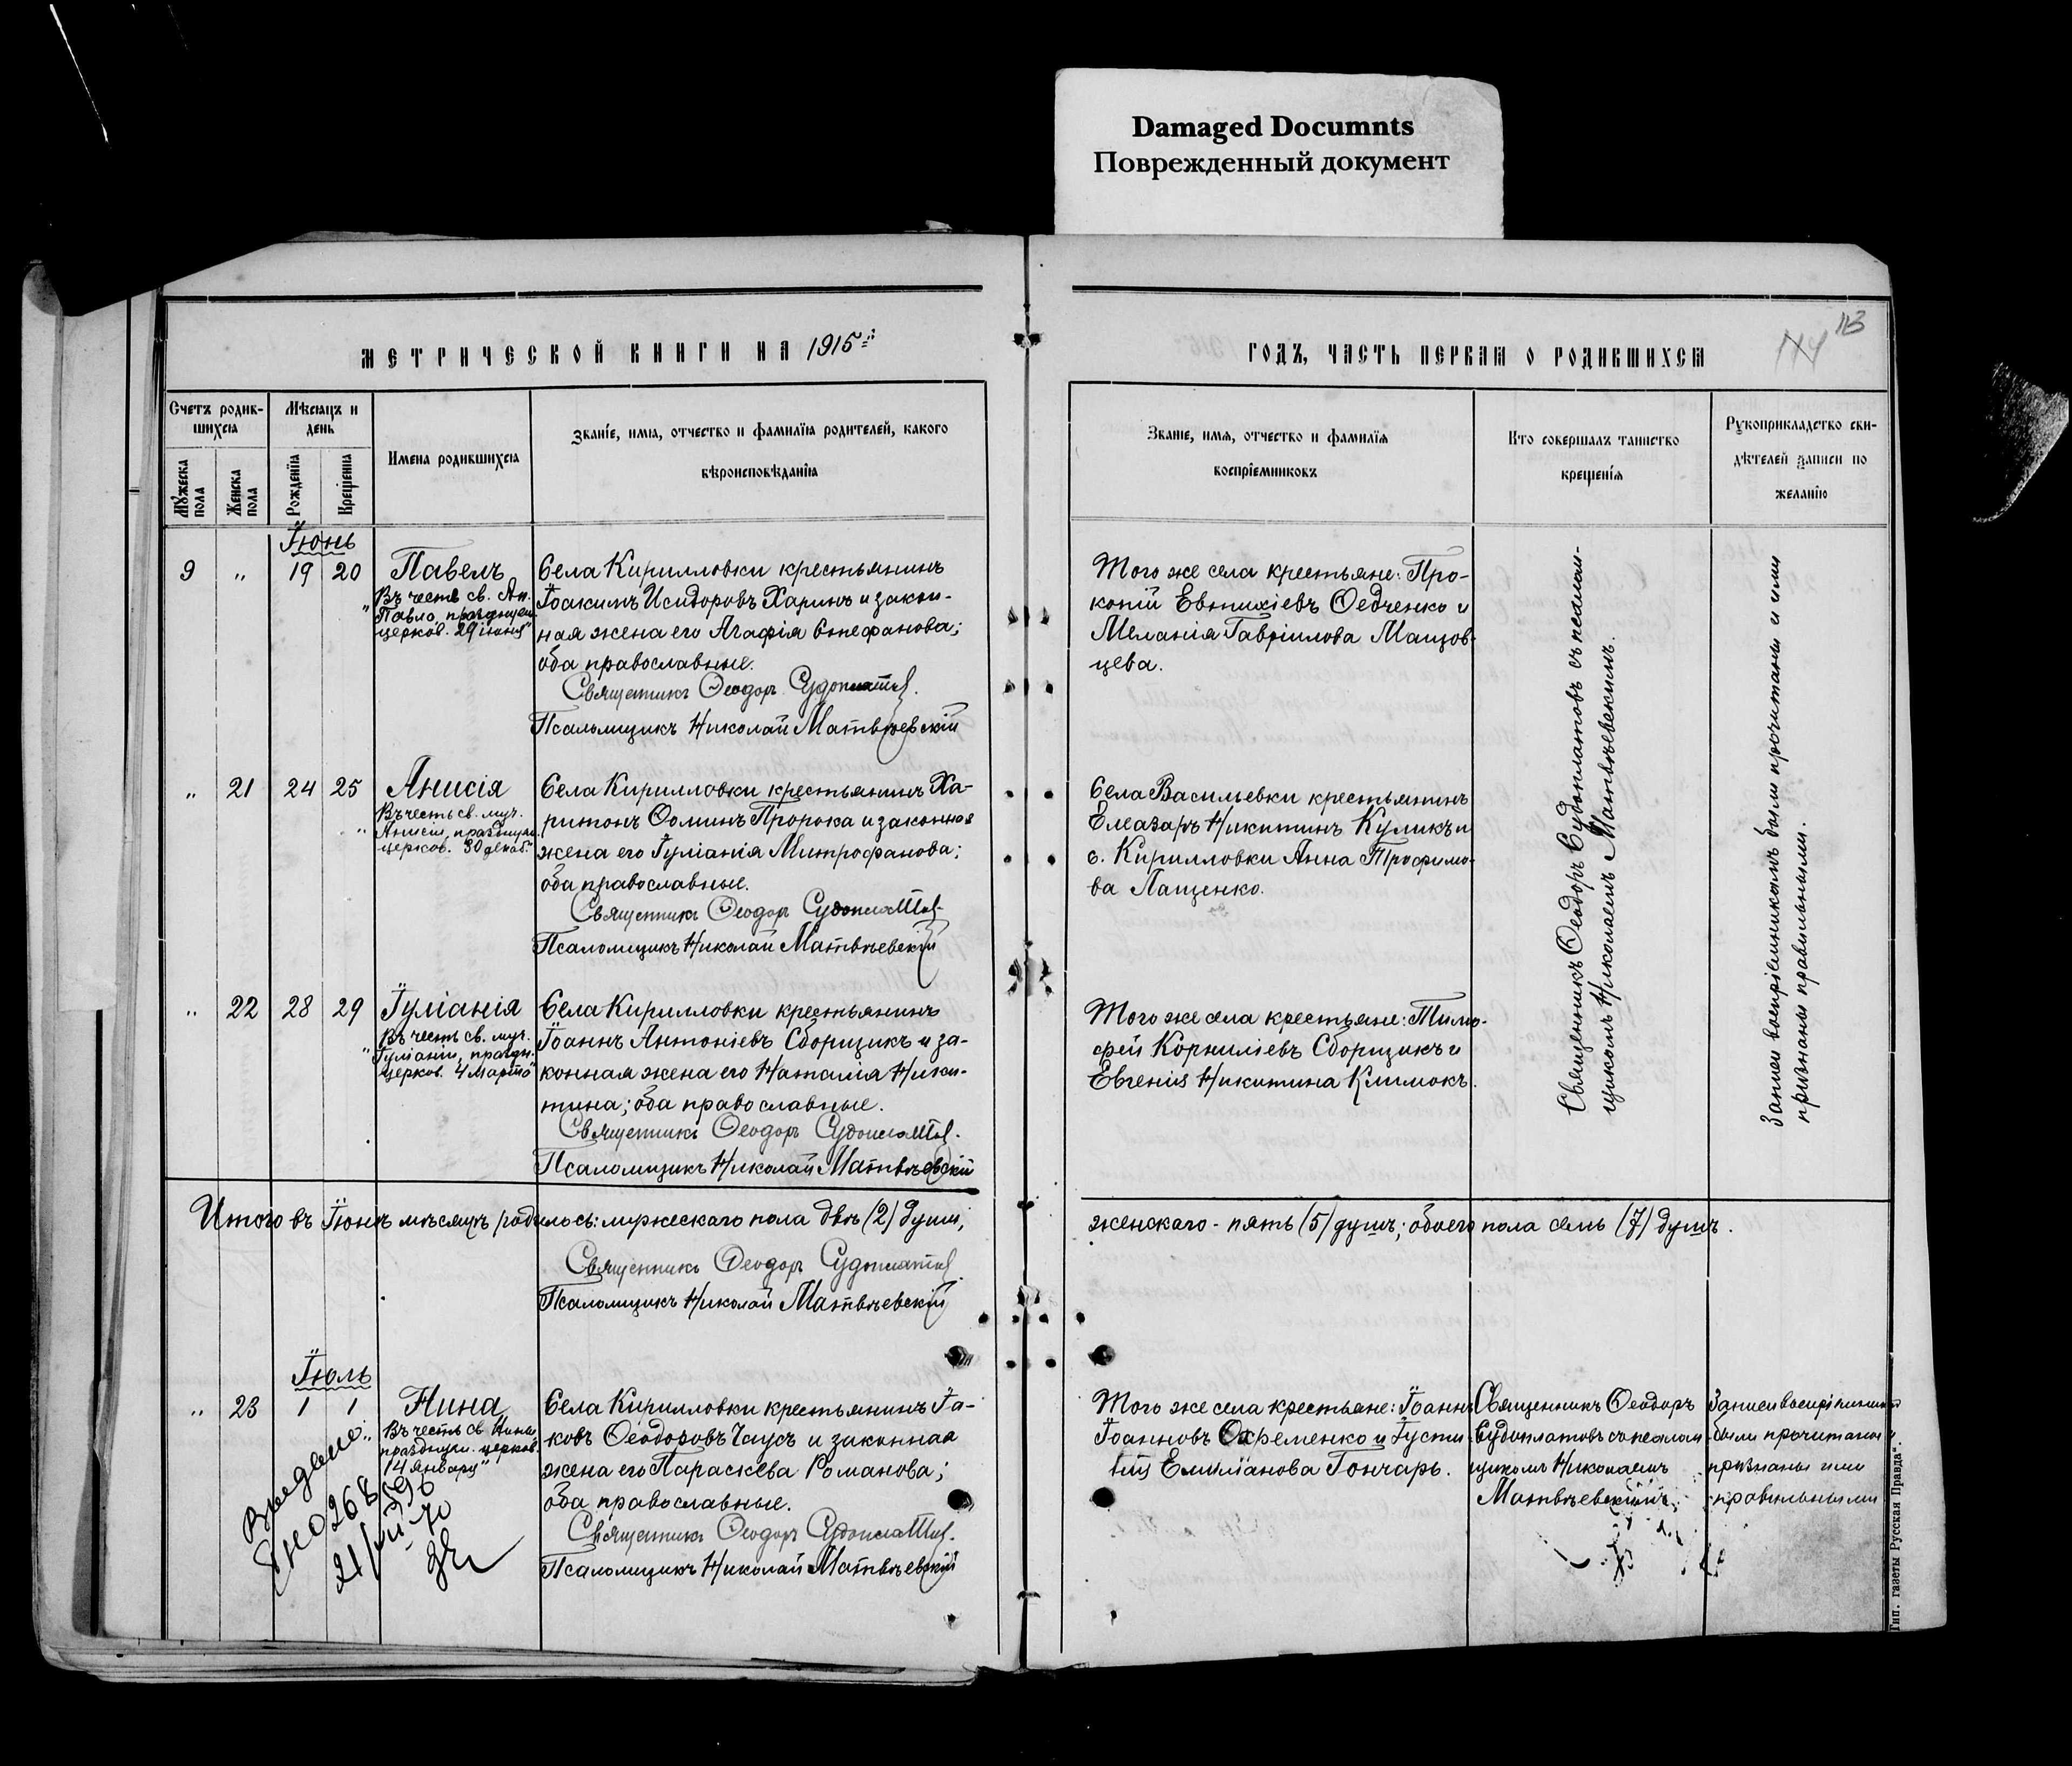 Damaged Documnts
Поврежденный документ
МЕТРИЧЕСКОЙ КНИГИ НА 1915
ГОДЪ, ЧАСТЬ ПЕРВАЯ О РОДИВШИХСЯ
113
Счетъ родив-
шихся
Мужеска пола
Женска пола
Мѣсяцъ и
день
Рожденія
Крещенія
Имена родившихся
Званіе, имя, отчество и фамилія родителей, какого
вѣроисповѣданія
Званіе, имя, отчество и фамилія
воспріемниковъ
Кто совершалъ таинство
крещенія
Рукоприкладство сви-
дѣтелей записи по
желанію
Іюнь
9 " 19 20 Павелъ
Въ честь св. Ап.
Павла, празднуем.
церков. 29 іюня"
Села Кирилловки крестьянинъ
Іоакимъ Исидоровъ Харинъ и закон-
ная жена его Агафія Стефанова;
оба православные.
Священникъ Ѳеодоръ Судоплатов.
Псаломщикъ Николай Матвѣевскій
Того же села крестьяне: Про-
копій Евтихіевъ Ѳедченко и
Меланія Гавріилова Мащов-
цева.
" 21 24 25 Анисія
Въ честь св. муч.
Анисіи, празднуем.
церков. 30 декаб."
Села Кирилловки крестьянинъ Ха-
ритонъ Ѳоминъ Пророка и законная
жена его Іуліанія Митрофанова;
оба православные.
Священникъ Ѳеодоръ Судоплатов.
Псаломщикъ Николай Матвѣевскій
Села Васильевки крестьянинъ
Елеазаръ Никитинъ Куликъ и
с. Кирилловки Анна Трофимо-
ва Лащенко.
" 22 28 29 Іуліанія
Въ честь св. муч.
Іуліаніи, праздн.
церков. 4 марта"
Села Кирилловки крестьянинъ
Іоаннъ Антоніевъ Сборщикъ и за-
конная жена его Наталія Ники-
тина; оба православные.
Священникъ Ѳеодоръ Судоплатов.
Псаломщикъ Николай Матвѣевскій
Того же села крестьяне: Тимо-
фей Корниліевъ Сборщикъ и
Евгенія Никитина Климокъ.
Священникъ Ѳеодоръ Судоплатовъ съ псалом-
щикомъ Николаемъ Матвѣевскимъ.
Записи воспріемникомъ были прочитаны и ими
признаны правильными.
Итого въ Іюнѣ мѣсяцѣ родилось: мужескаго пола двѣ (2) души;
женскаго - пять (5) душъ; обоего пола семь (7) душъ.
Священникъ Ѳеодоръ Судоплатов
Псаломщикъ Николай Матвѣевскій
Іюль
" 23 1 1 Нина
Въ честь св Нины,
празднуем. церков.
14 января"
Села Кирилловки крестьянинъ Іа-
ковъ Ѳеодоровъ Чаусъ и законная
жена его Параскева Романова;
оба православные.
Священникъ Ѳеодоръ Судоплатов.
Псаломщикъ Николай Матвѣевскій
Того же села крестьяне: Іоаннъ
Іоанновъ Охременко и Іусти-
нія Емиліанова Гончаръ.
Священникъ Ѳеодоръ
Судоплатовъ съ псалом
щикомъ Николаемъ
Матвѣевскимъ.
Записи воспріемникомъ
были прочитаны и
признаны ими
правильными
21/VII 70
Тип. газеты Русская Правда".